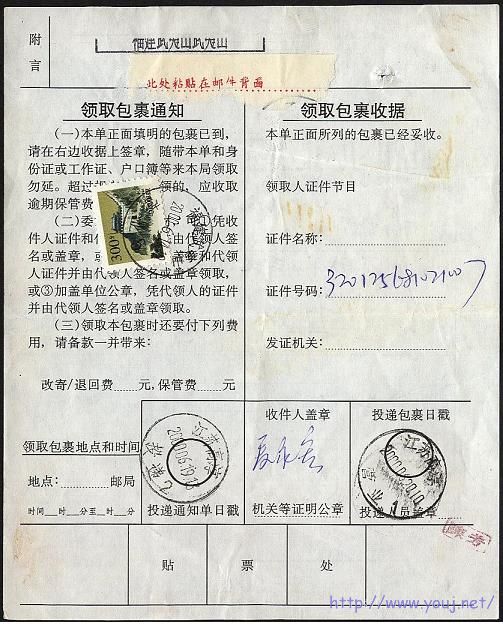 附言
福建武夷山武夷山
此处粘贴在邮件背面
领取包裹通知
(一)本单正面填明的包裹已到,
请在右边收据上签章,随带本单和身
份证或工作证、户口簿等来本局领取
勿延。超过
领的,应收取
逾期保管费
(二)委
①凭收
件人证件和
由代领人签
名或盖章,或
盖章和代领
人证件并由代领人签名或盖章领取,
或③加盖单位公章,凭代领人的证件
并由代领人签名或盖章领取。
(三)领取本包裹时还要付下列费
用,请备款一并带来:
改寄/退回费 元,保管费 元
300
领取包裹收据
本单正面所列的包裹已经妥收。
领取人证件节目
证件名称:
证件号码:
发证机关:
领取包裹地点和时间
地点: 邮局
时间 月 日 分至 时 分
江苏南京
2000.06.19
投递通知单日戳
收件人盖章
机关等证明公章
投递包裹日戳
江苏南京
投递人员盖章
贴 票 处
http://www.youj.net/